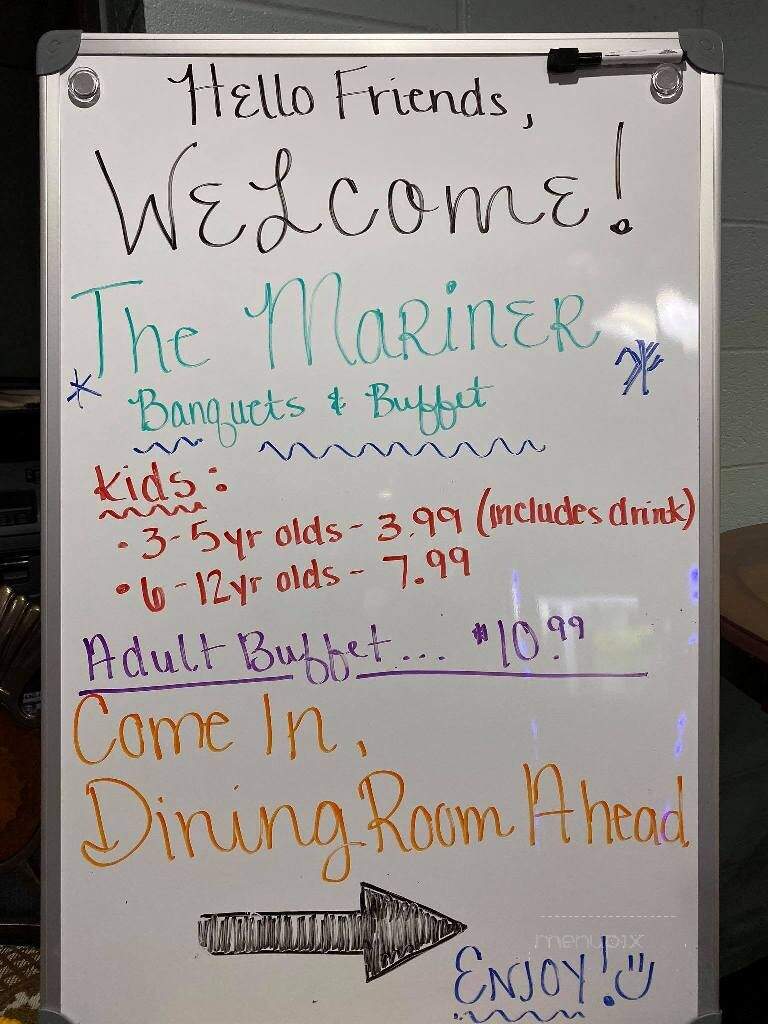 Hello Friends,
WELCOME!
The MARiNER
Banquets & Buffet
Kids:
• 3-5yr olds - 3.99 (includes drink)
• 6-12yr olds - 7.99
Adult Buffet... $10.99
Come In,
Dining Room Ahead
ENJOY!
menupix